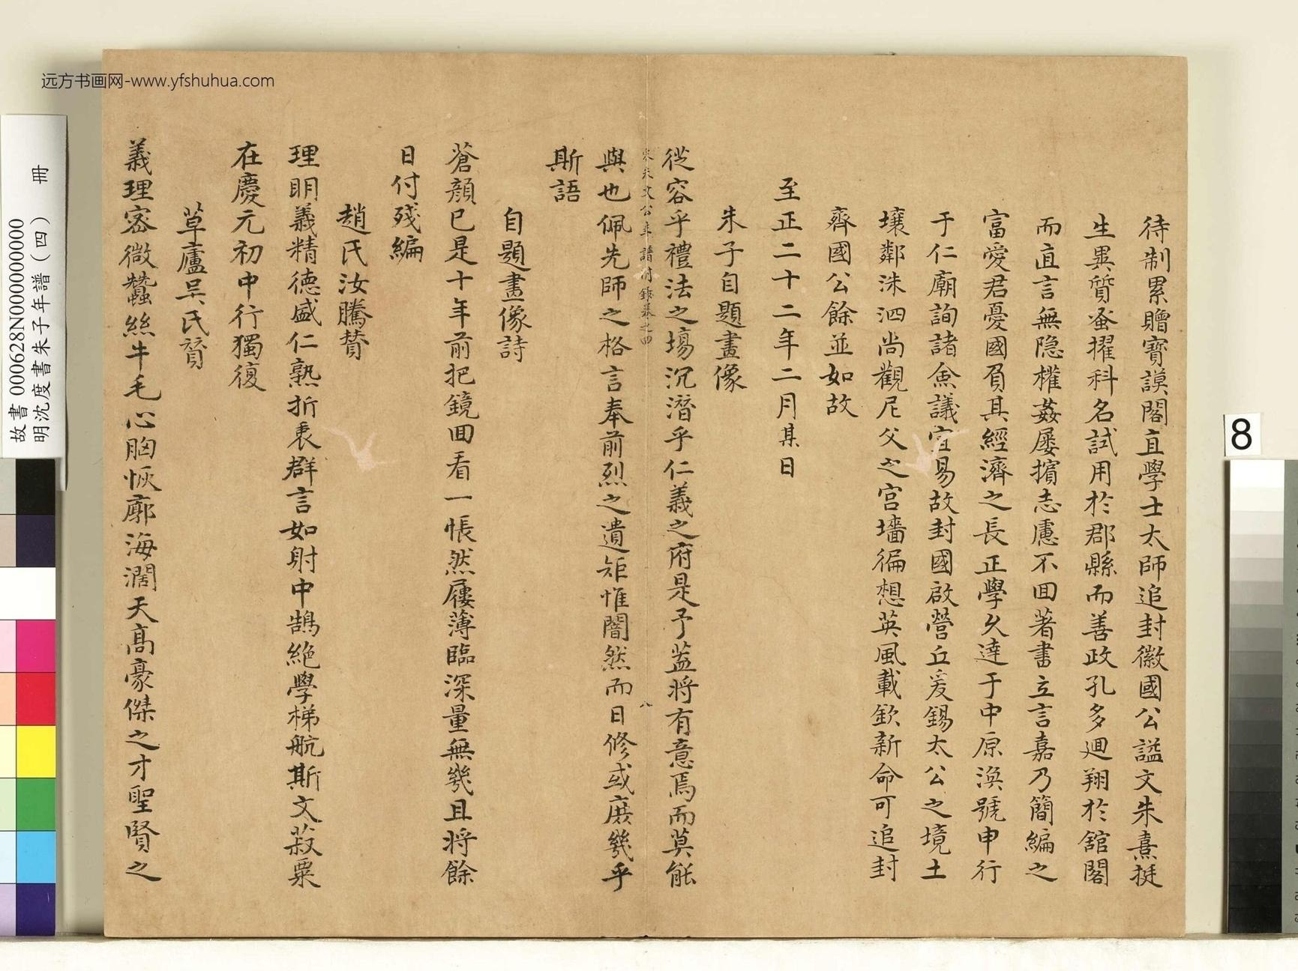 远方书画网-www.yfshuhua.com
待制累贈寶謨閣直學士太師追封徽國公謚文朱熹挺
生異質蚤擢科名試用於郡縣而善政孔多迴翔於舘閣
而直言無隐權姦屢擯志慮不回著書立言嘉乃簡編之
富愛君憂國負其經濟之長正學久逹于中原渙號申行
于仁廟詢諸僉議宜易故封國啟營丘爰錫太公之境土
壤鄰洙泗尚觀尼父之宮墻徧想英風載欽新命可追封
齊國公餘並如故
至正二十二年二月某日
朱子自題畫像
從容乎禮法之場沉潛乎仁義之府是予葢将有意焉而莫能
與也佩先師之格言奉前烈之遺矩惟闇然而日修或庶幾乎
斯語
自題畫像詩
蒼顔已是十年前把鏡回看一悵然履薄臨深量無幾且将餘
日付殘編
趙氏汝騰贊
理明義精德盛仁熟折衷群言如射中鵠絶學梯航斯文菽粟
在慶元初中行獨復
草廬吴氏贊
義理宻微蠶絲牛毛心胸恢廓海濶天髙豪傑之才聖賢之
朱文公年譜附錄卷之四
八
故書 000628N000000000
明沈度書朱子年譜(四)
8